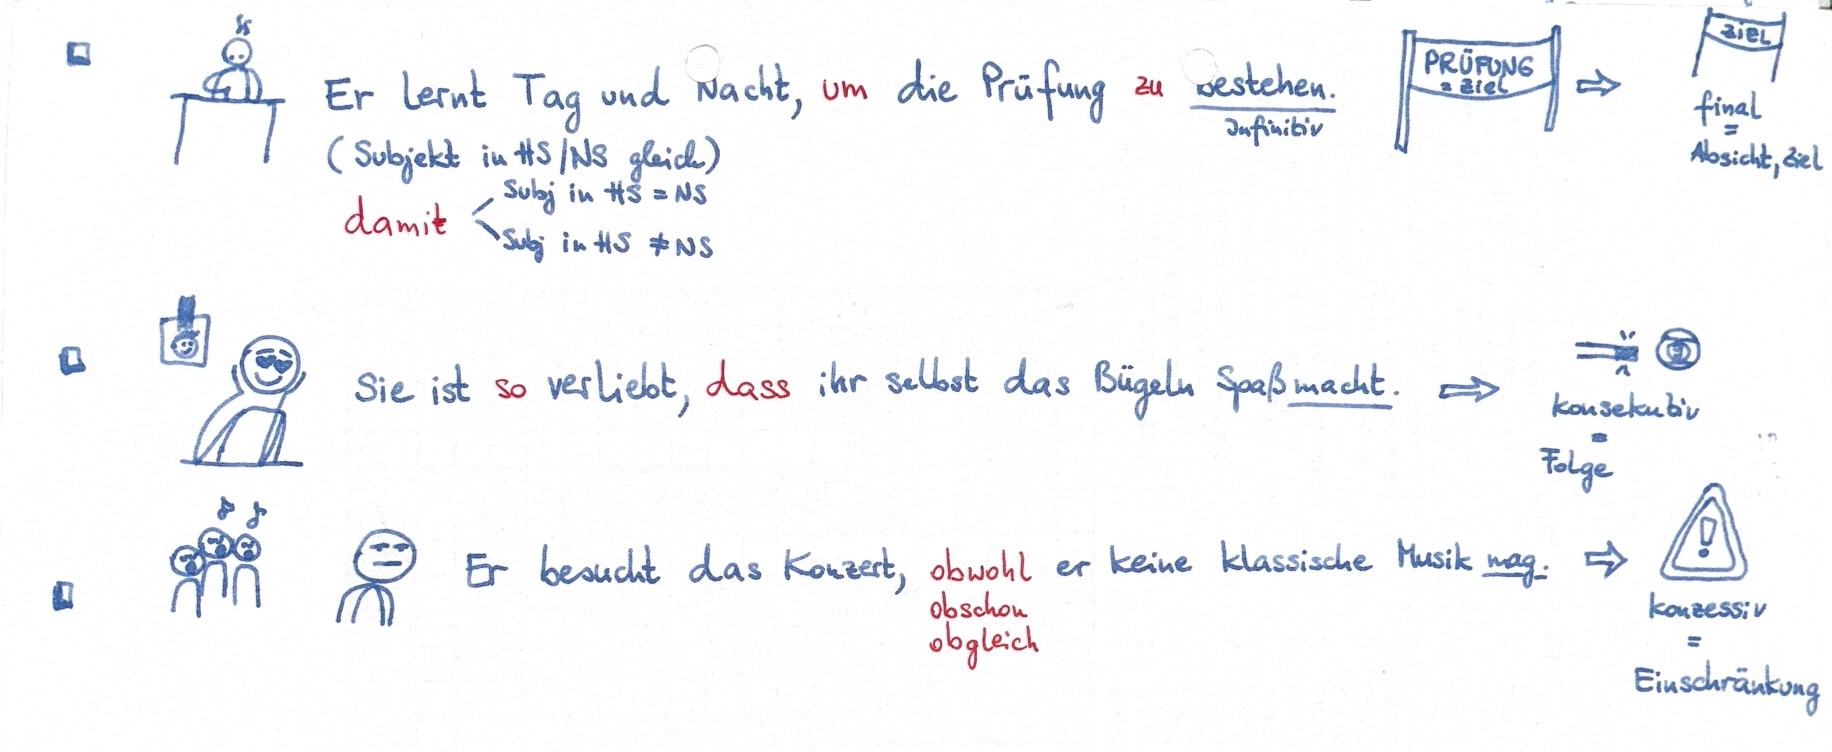 Er lernt Tag und Nacht, um die Prüfung zu bestehen.
Infinitiv
(Subjekt in HS/NS gleich)
damit
Subj in HS = NS
Subj in HS ≠ NS
PRÜFUNG
= ZIEL
⇨
ZIEL
final
=
Absicht, Ziel
Sie ist so verliebt, dass ihr selbst das Bügeln Spaß macht. ⇨
konsekutiv
=
Folge
Er besucht das Konzert, obwohl er keine klassische Musik mag. ⇨
obschon
obgleich
!
konzessiv
=
Einschränkung